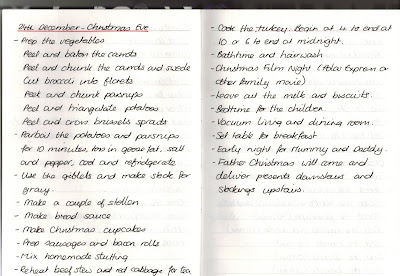 24th December - Christmas Eve
- Prep the vegetables
Peel and baton the carrots
Peel and chunk the carrots and swede
Cut broccoli into florets
Peel and chunk parsnips
Peel and triangulate potatoes
Peel and cross brussels sprouts
- Parboil the potatoes and parsnips
for 10 minutes, toss in goose fat, salt
and pepper, cool and refridgerate.
- Use the giblets and make stock for
gravy.
- Make a couple of stollen
- Make bread sauce
- Make Christmas cupcakes
- Prep sausages and bacon rolls
- Mix homemade stuffing
- Reheat beef stew and red cabbage for tea
- Cook the turkey. Begin at 4 to end at
10 or 6 to end at midnight.
- Bathtime and hairwash
- Christmas Film Night (Polar Express or
other family movie)
- Leave out the milk and biscuits.
- Bedtime for the children.
- Vacuum living and dining room.
- Set table for breakfast
- Early night for Mummy and Daddy.
- Father Christmas will come and
deliver presents downstairs and
stockings upstairs.